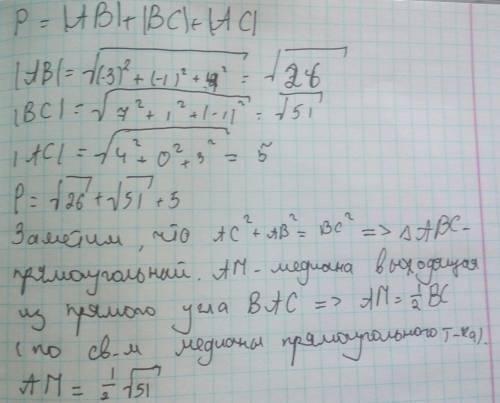 P = |AB| + |BC| + |AC|
|AB| = √((-3)² + (-1)² + 4²) = √26
|BC| = √(7² + 1² + (-1)²) = √51
|AC| = √(4² + 0² + 3²) = 5
P = √26 + √51 + 5
Заметим, что AC² + AB² = BC² => ΔABC -
прямоугольный. AM - медиана выходящая
из прямого угла BAC => AM = ½ BC
(по св-м медианы прямоугольного т-ка).
AM = ½ √51